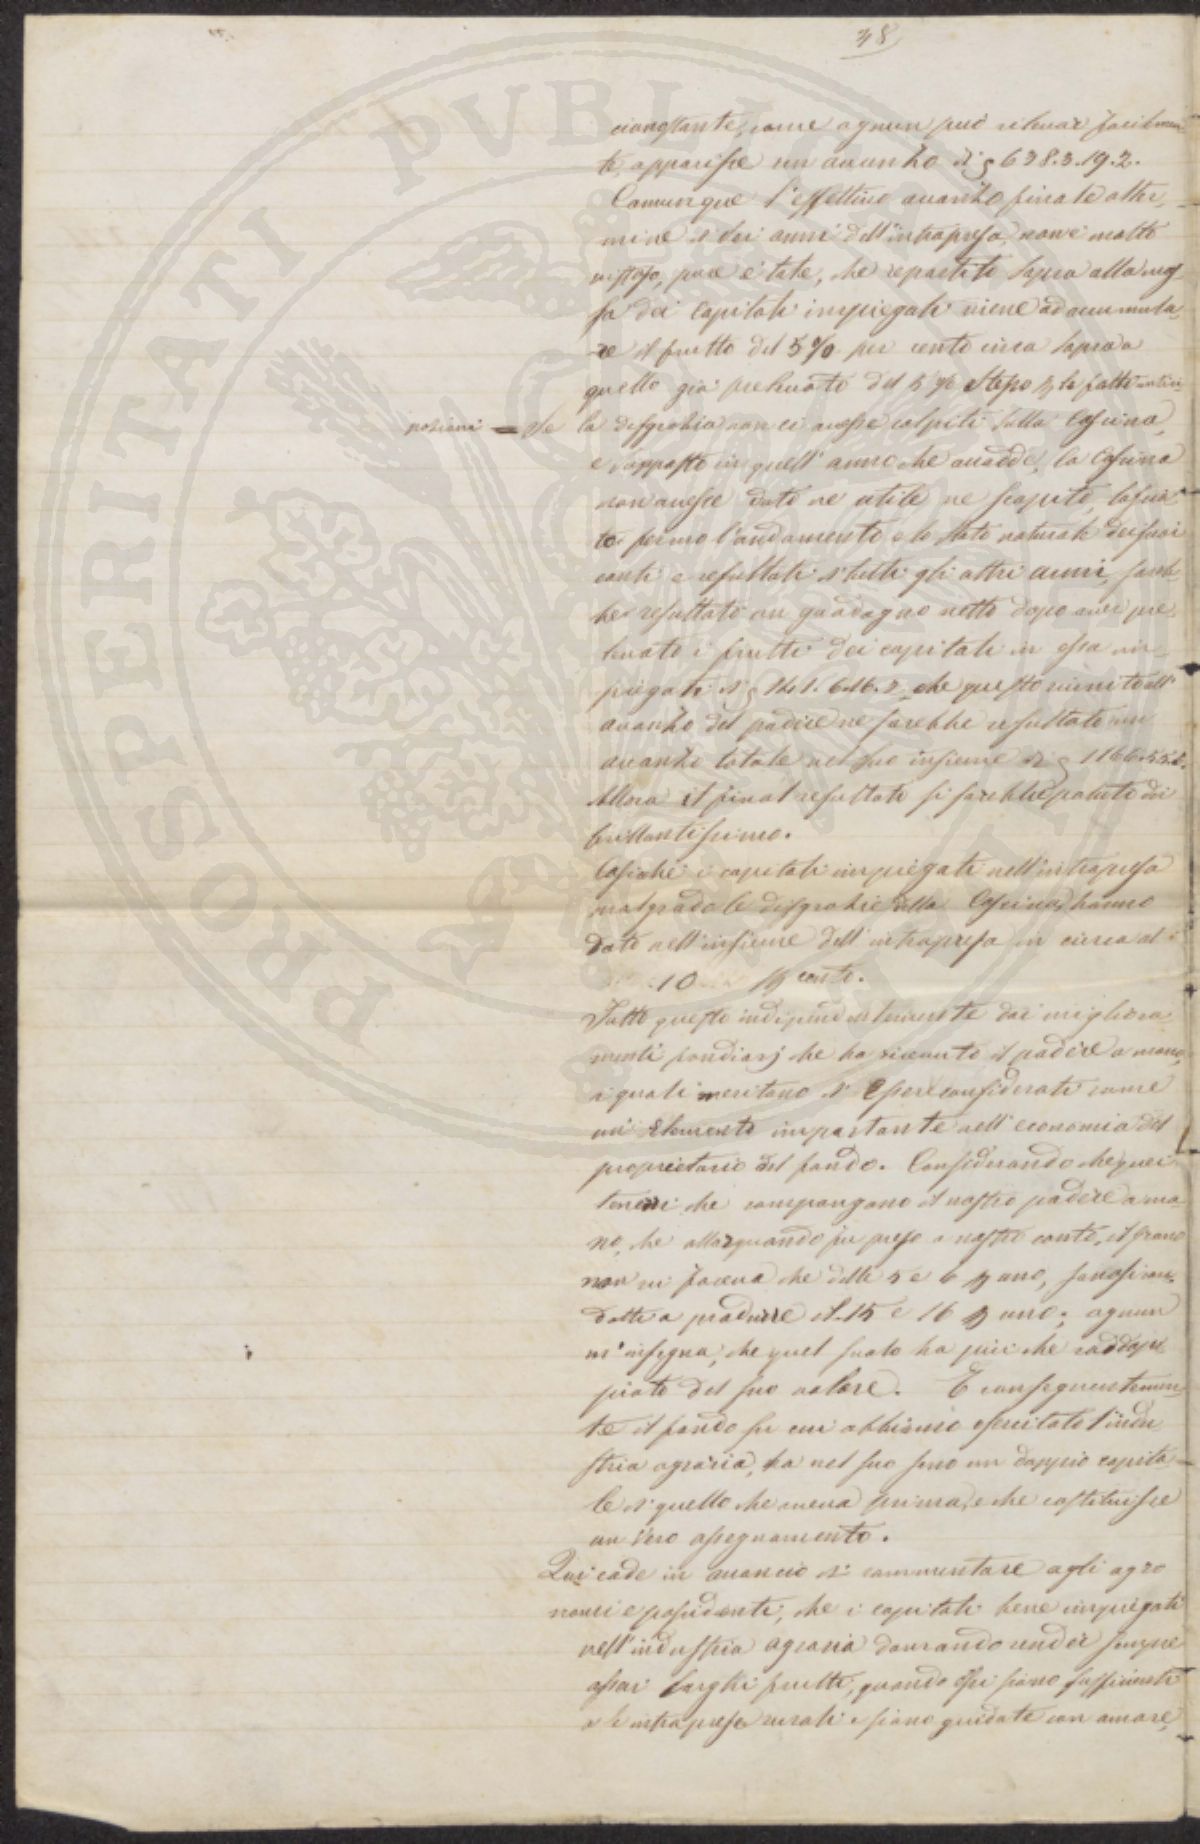 48
cionostante, come ognun può rilevar facilmen
te, apparisce un avanzo di 638.3.19.2.
Comunque l'effettivo avanzo finale al ter-
mine di sei anni dell'intrapresa, non è molto
vistoso, pure è tale, che repartito sopra alla mas
sa dei Capitali impiegati viene ad accumula-
re il frutto del 5 % per cento circa sopra a
quello già prelevato del 5 % Stesso p le fatte antici
pazioni = Se la disgrazia non ci avesse colpiti sulla Cascina,
e supposto in quell'anno che accadde, la Cascina
non avesse dato ne utile ne scapito, lascia
to fermo l'andamento e lo stato naturale dei suoi
conti e resultati di tutti gli altri anni, sareb
be resultato un guadagno netto dopo aver pre
levato i frutti dei capitali in essa im-
piegati di che questo riunito all'
avanzo del podere ne sarebbe resultato un
avanzo totale nel suo insieme di 1166.5.5.8.
Allora il final resultato si sarebbe potuto dir
brillantissimo.
Cosicché i capitali impiegati nell'intrapresa
malgrado le disgrazie della Cascina, hanno
dato nell'insieme dell'intrapresa in circa al
10 p cento.
Tutto questo indipendentemente dai migliora
menti fondiarj che ha ricevuto il podere a mano,
i quali meritano di Essere considerati come
un Elemento importante nell'economia del
proprietario del fondo. Considerando che quei
terreni che compongono il nostro podere a ma-
no, che allorquando fu preso a nostro conto, il grano
non vi faceva che delle 5 e 6 p uno, sonosi con-
dotti a produrre il 15 e 16 p uno; ognun
m'insegna, che quel suolo ha più che raddop
piato del suo valore. E conseguentemen-
te il fondo su cui abbiamo esercitato l'indu
stria agraria, ha nel suo seno un doppio capita-
le di quello che aveva prima, e che costituisce
un vero assegnamento.
Qui cade in acconcio di rammentare agli agro
nomi e possidenti, che i capitali bene impiegati
nell'industria agraria dovranno render sempre
assai larghi frutti, quando essi siano sufficienti
e le intraprese rurali siano guidate con amore,